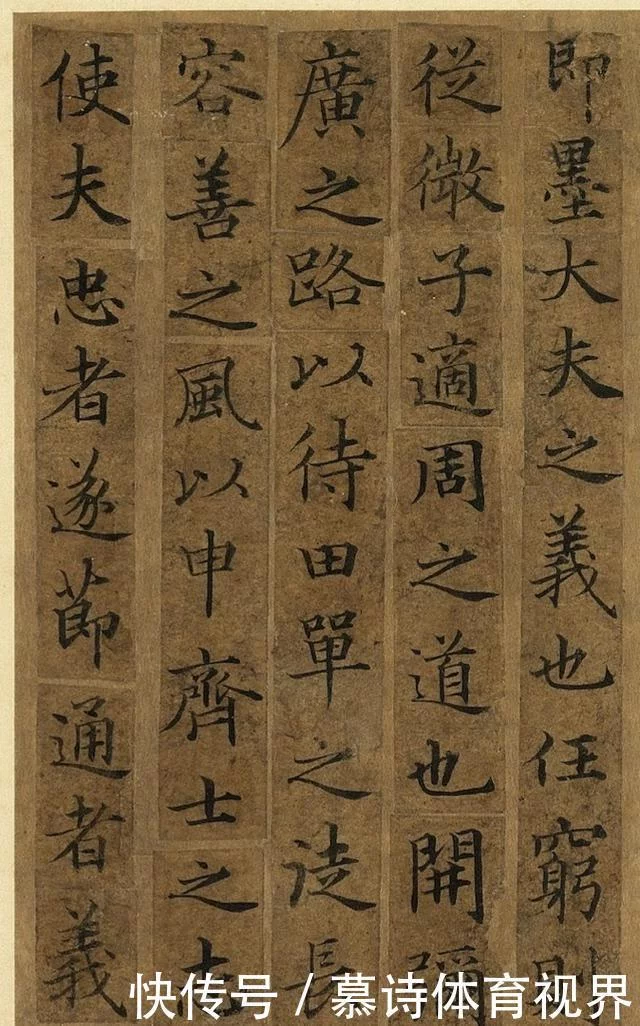 即墨大夫之義也任窮則
從微子適周之道也開彌
廣之路以待田單之徒長
容善之風以申齊士之志
使夫忠者遂節通者義
快传号 / 慕诗体育视界